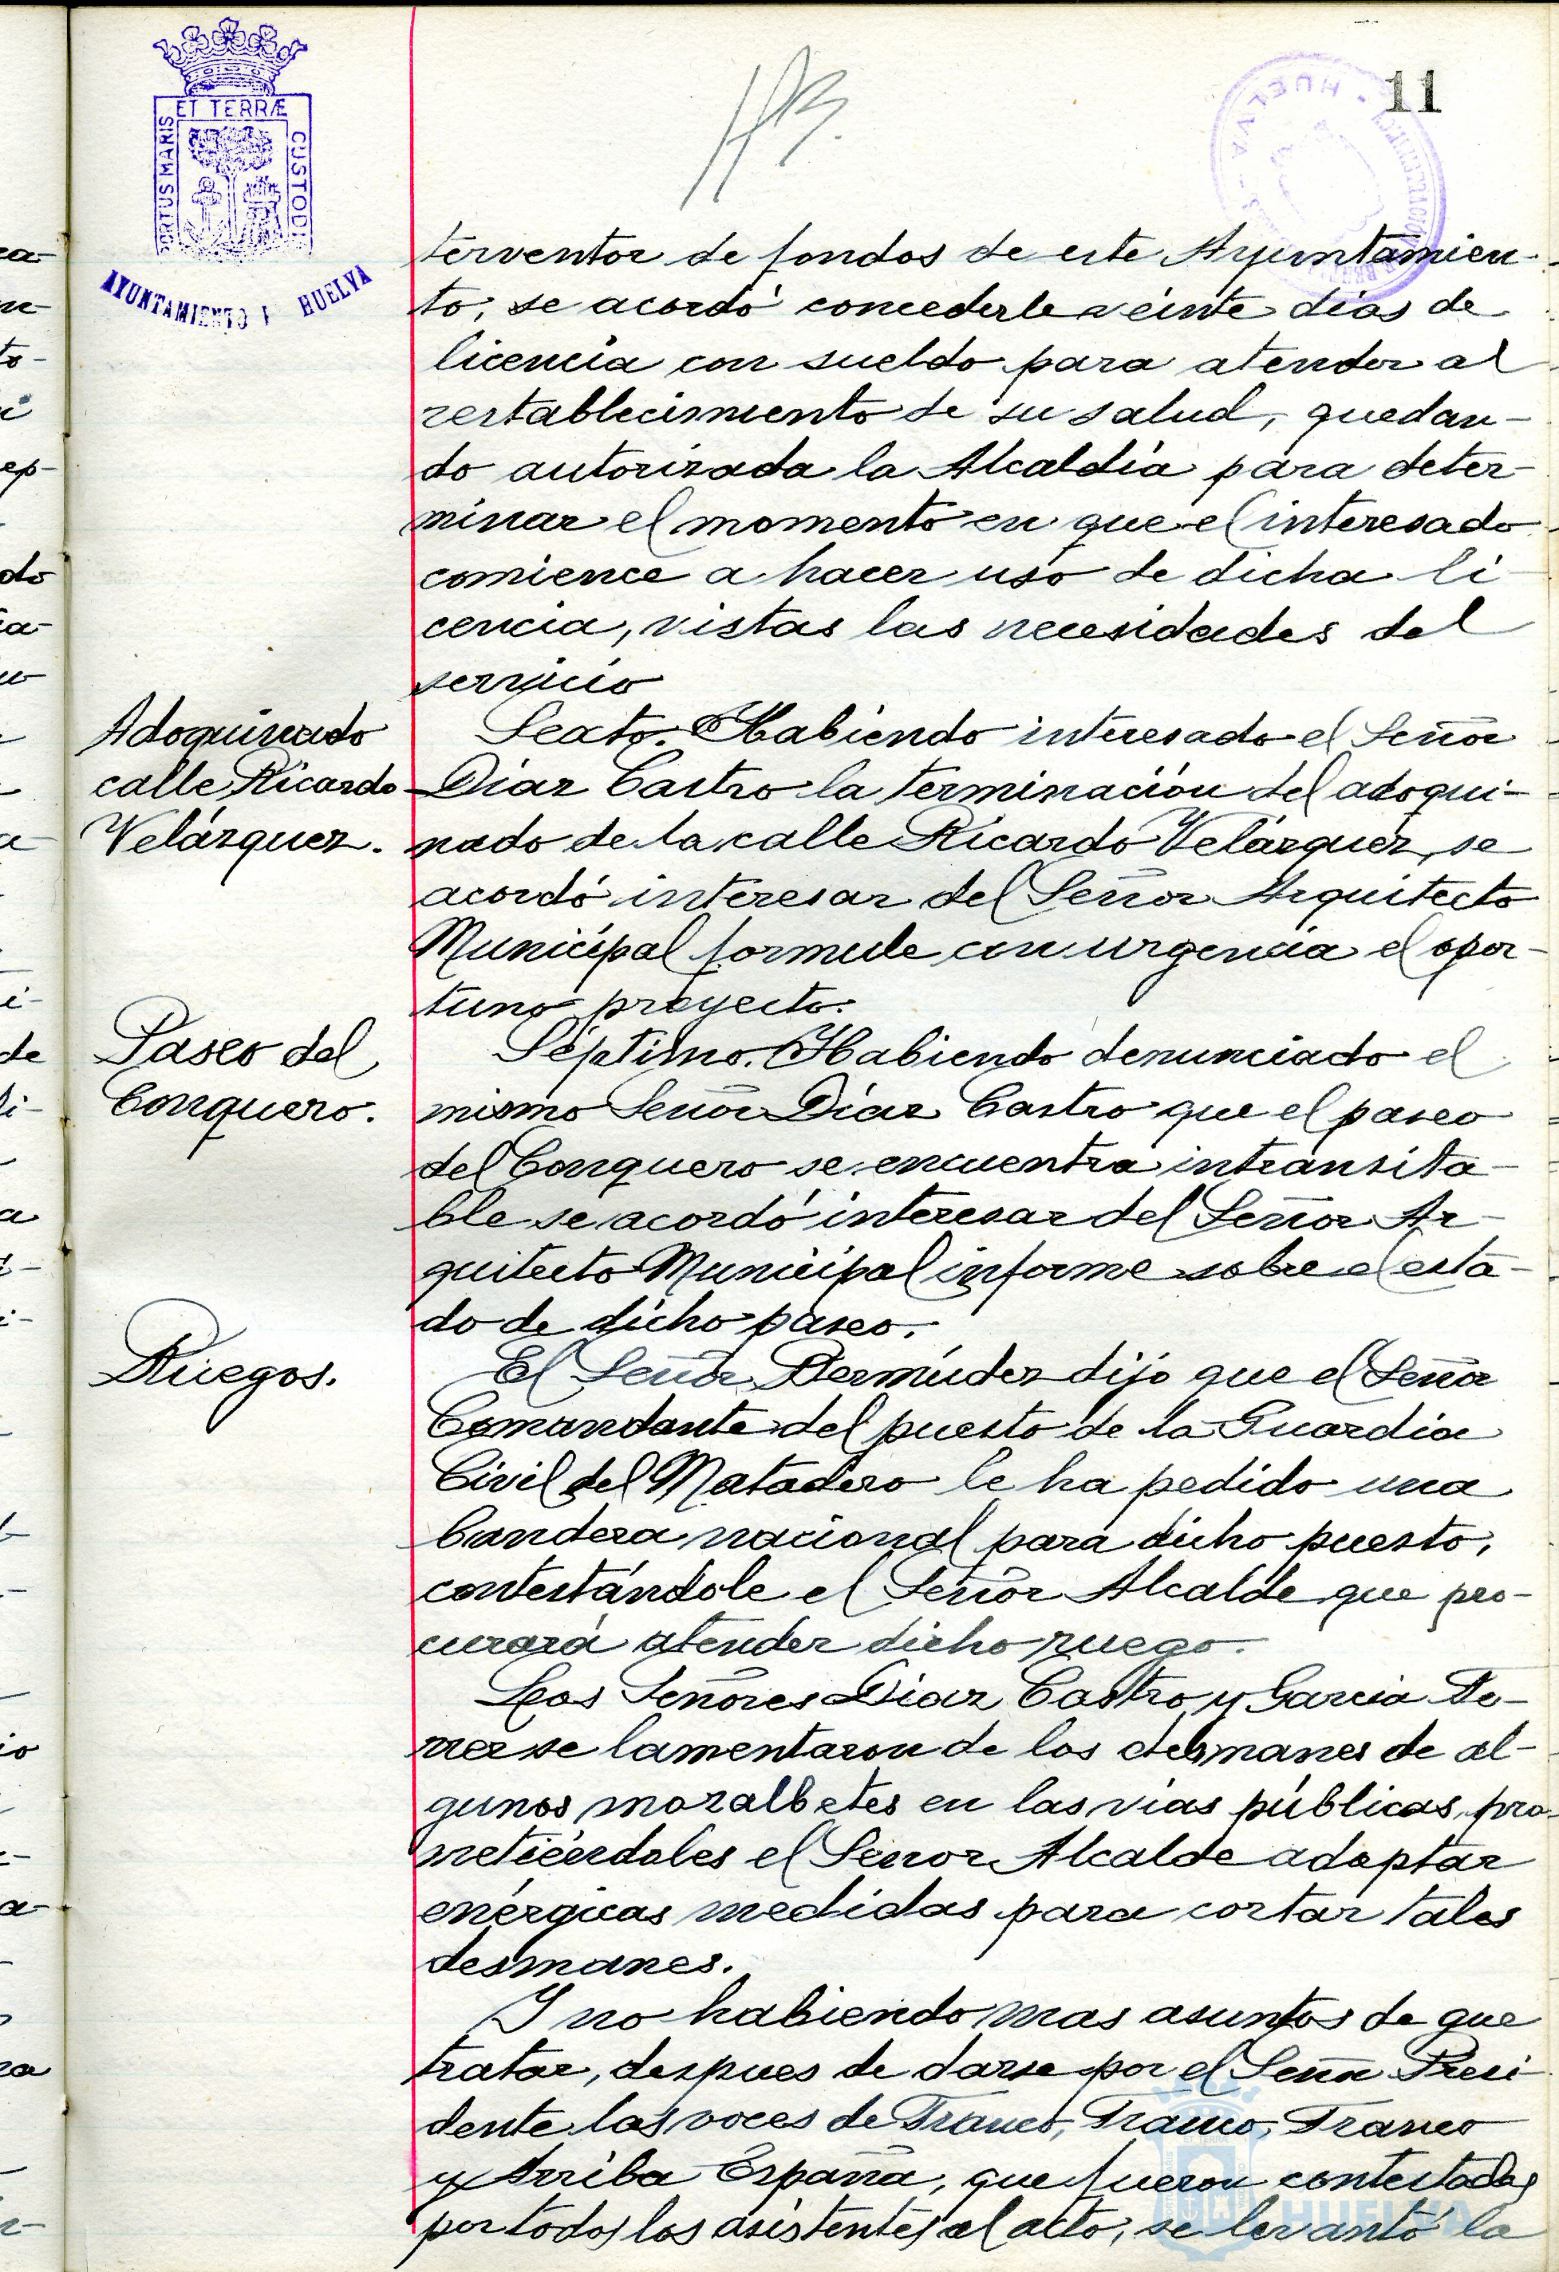 11
ET TERRÆ
PORTUS MARIS
CUSTODI
AYUNTAMIENTO HUELVA
HUELVA
terventor de fondos de este Ayuntamien-
to, se acordó concederle veinte dias de
licencia con sueldo para atender al
restablecimiento de su salud, quedan-
do autorizada la Alcaldía para deter-
minar el momento en que el interesado
comience a hacer uso de dicha li-
cencia, vistas las necesidades del
servicio
Adoquinado
calle Ricardo
Velázquez.
Sexto. Habiendo interesado el Señor
Diaz Castro la terminación del adoqui-
nado de la calle Ricardo Velázquez, se
acordó interesar del Señor Arquitecto
Municipal formule con urgencia el opor-
tuno proyecto.
Paseo del
Conquero.
Séptimo. Habiendo denunciado el
mismo Señor Díaz Castro que el paseo
del Conquero se encuentra intransita-
ble se acordó interesar del Señor Ar-
quitecto Municipal informe sobre el esta-
do de dicho paseo.
Ruegos.
El Señor Bermúdez dijo que el Señor
Comandante del puesto de la Guardia
Civil del Matadero le ha pedido una
bandera nacional para dicho puesto,
contestándole el Señor Alcalde que pro-
curará atender dicho ruego.
Los Señores Diaz Castro y Garcia
se lamentaron de los desmanes de al-
gunos moralbetes en las vias públicas, pro-
metiéndoles el Señor Alcalde adoptar
enérgicas medidas para cortar tales
desmanes.
Y no habiendo mas asuntos de que
tratar, despues de darse por el Señor Presi-
dente las voces de Franco, Franco, Franco
y Arriba España, que fueron contestadas
por todos los asistentes al acto, se levantó la
HUELVA